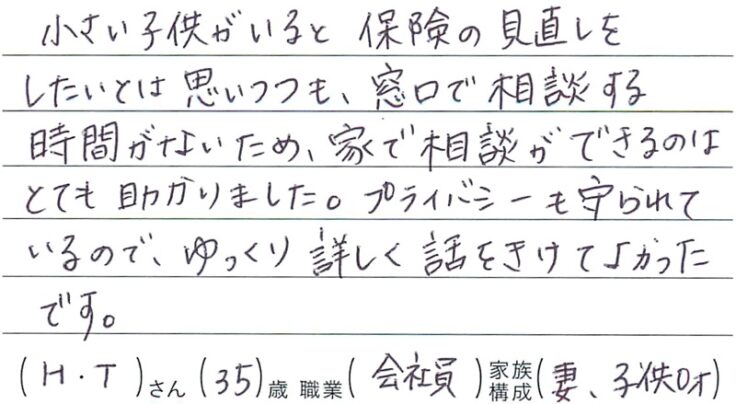 小さい子供がいると 保険の見直しを
したいとは思いつつも、窓口で相談する
時間がないため、家で相談ができるのは
とても助かりました。プライバシーも守られて
いるので、ゆっくり詳しく話をきけてよかった
です。
(H・T)さん (35)歳 職業(会社員)家族構成(妻、子供0才)